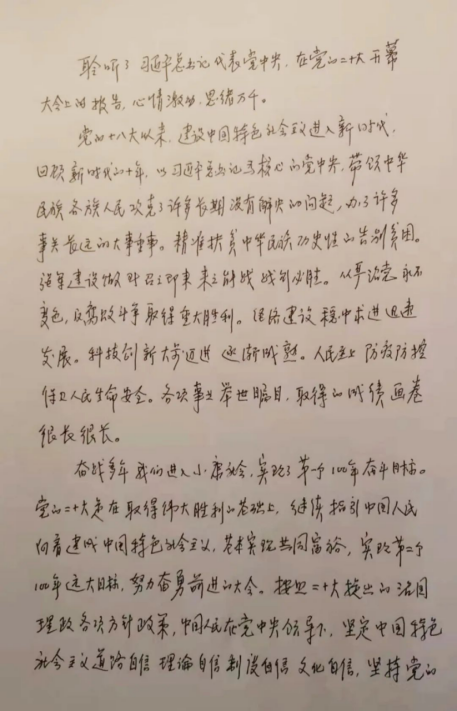 聆听了习近平总书记代表党中央,在党的二十大开幕
大会上的报告,心情激动,思绪万千。
党的十八大以来,建设中国特色社会主义进入新时代,
回顾新时代的十年,以习近平总书记为核心的党中央,带领中华
民族各族人民攻克了许多长期没有解决的问题,办了许多
事关长远的大事要事。精准扶贫中华民族历史性的告别贫困。
强军建设做到召之即来来之能战战则必胜。从严治党永不
变色,反腐败斗争取得重大胜利。经济建设稳中求进迅速
发展。科技创新大步迈进逐渐成熟。人民至上防疫防控
保卫人民生命安全。各项事业举世瞩目,取得的成绩画卷
很长很长。
奋战多年我们进入小康社会,实现了第一个100年奋斗目标。
党的二十大是在取得伟大胜利的基础上,继续指引中国人民
向着建成中国特色社会主义,基本实现共同富裕,实现第二个
100年远大目标,努力奋勇前进的大会。按照二十大提出的治国
理政各项方针政策,中国人民在党中央领导下,坚定中国特色
社会主义道路自信理论自信制度自信文化自信,坚持党的